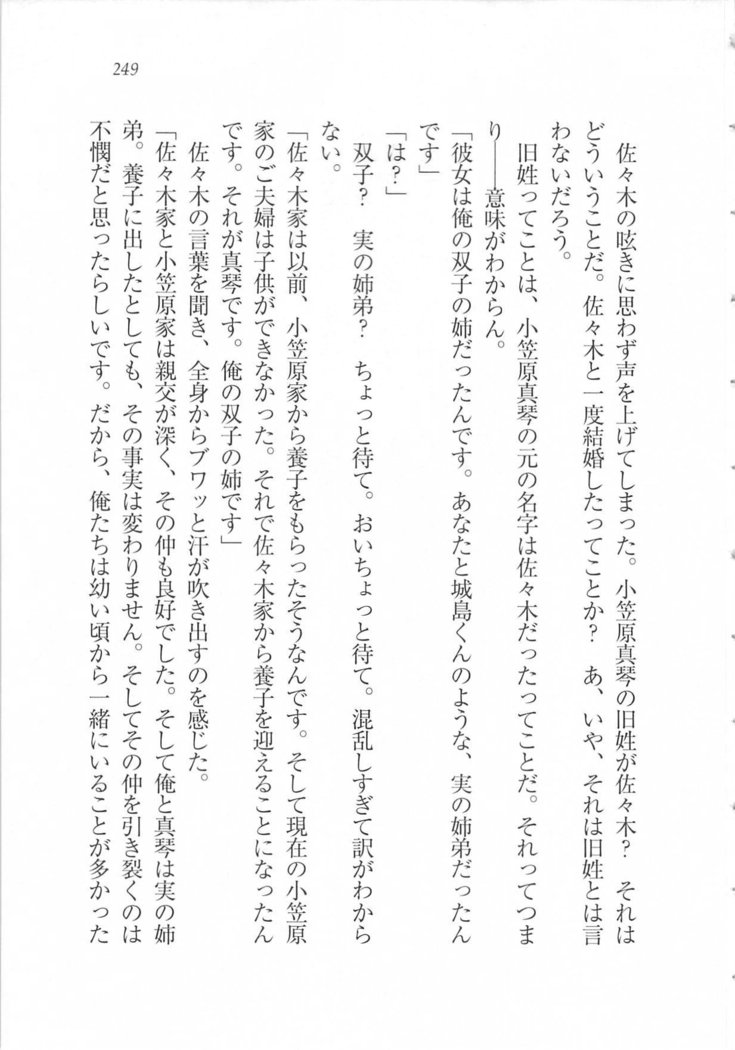 249
　佐々木の呟きに思わず声を上げてしまった。小笠原真琴の旧姓が佐々木？　それは
どういうことだ。佐々木と一度結婚したってことか？　あ、いや、それは旧姓とは言
わないだろう。
　旧姓ってことは、小笠原真琴の元の名字は佐々木だったってことだ。それってつま
り――意味がわからん。
「彼女は俺の双子の姉だったんです。あなたと城島くんのような、実の姉弟だったん
です」
「は？」
　双子？　実の姉弟？　ちょっと待て。おいちょっと待て。混乱しすぎて訳がわから
ない。
「佐々木家は以前、小笠原家から養子をもらったそうなんです。そして現在の小笠原
家のご夫婦は子供ができなかった。それで佐々木家から養子を迎えることになったん
です。それが真琴です。俺の双子の姉です」
　佐々木の言葉を聞き、全身からブワッと汗が吹き出すのを感じた。
「佐々木家と小笠原家は親交が深く、その仲も良好でした。そして俺と真琴は実の姉
弟。養子に出したとしても、その事実は変わりません。そしてその仲を引き裂くのは
不憫だと思ったらしいです。だから、俺たちは幼い頃から一緒にいることが多かった